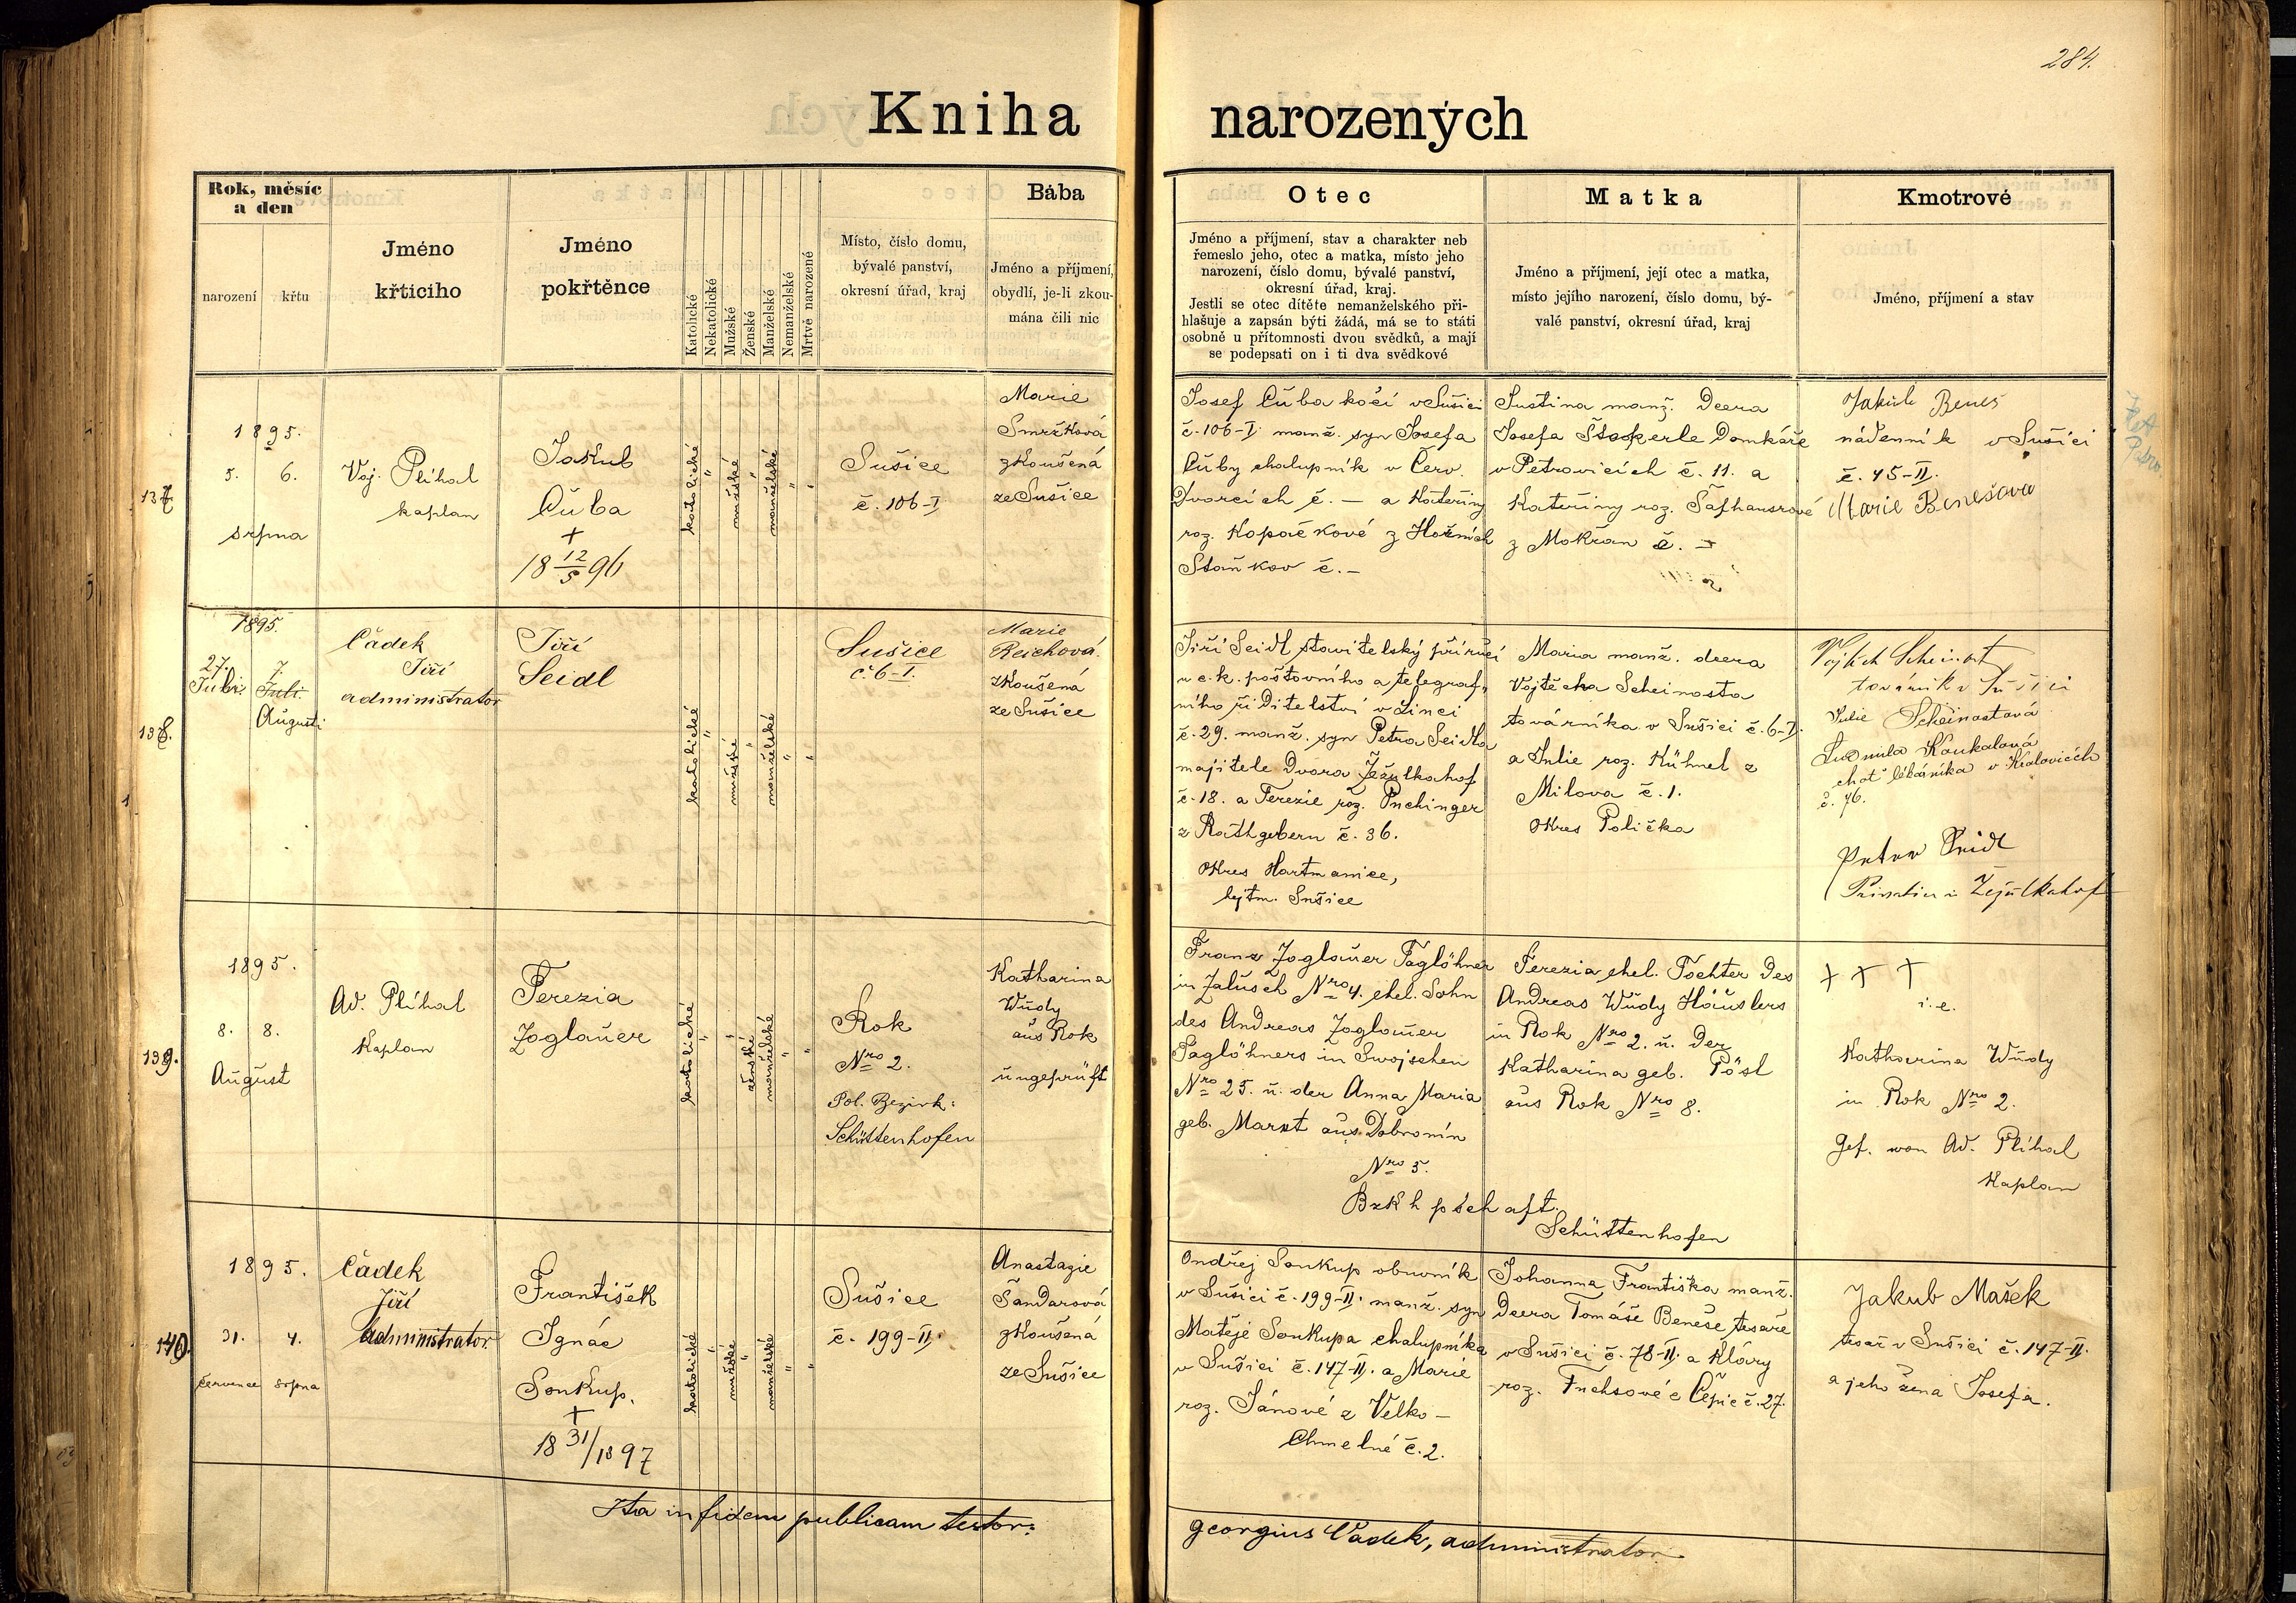 284.
Kniha narozených
Rok, měsíc
a den
narození
křtu
Jméno
křticiho
Jméno
pokřtěnce
Katolické
Nekatolické
Mužské
Ženské
Manželské
Nemanželské
Mrtvě narozené
Místo, číslo domu,
bývalé panství,
okresní úřad, kraj
Bába
Jméno a příjmení,
obydlí, je-li zkou-
mána čili nic
Otec
Jméno a příjmení, stav a charakter neb
řemeslo jeho, otec a matka, místo jeho
narození, číslo domu, bývalé panství,
okresní úřad, kraj.
Jestli se otec dítěte nemanželského při-
hlašuje a zapsán býti žádá, má se to státi
osobně u přítomnosti dvou svědků, a mají
se podepsati on i ti dva svědkové
Matka
Jméno a příjmení, její otec a matka,
místo jejího narození, číslo domu, bý-
valé panství, okresní úřad, kraj
Kmotrové
Jméno, příjmení a stav
137
1895.
5. 6.
srpna
Voj. Plíhal
kaplan
Jakub
Čuba
+
18 12/5 96
katolické
"
mužské
manželské
"
"
Sušice
č. 106-I
Marie
Smržková
zkoušená
ze Sušice
Josef Čuba kočí v Sušici
č. 106-I. manž. syn Josefa
Čuby chalupník v Červ.
Dvorcích č. — a Kateřiny
roz. Kopačkové z Hořních
Staňkov č. -
Justina manž. dcera
Josefa Domkáře
v Petrovicích č. 11. a
Kateřiny roz. Šafhauserové
z Mokřan č. -
Jakub Beneš
nádenník v Sušici
č. 45-II.
Marie Benešova
138.
1895.
27. 7.
Juli Juli
Augusti
Čádek
Jiří
administrator
Jiří
Seidl
katolické
"
mužské
"
manželské
"
"
Sušice
č. 6-I.
Marie
Reichová.
zkoušená
ze Sušice
Jiří Seidl stavitelský příručí
u c. k. poštovního a telegraf-
ního ředitelství v Linci
č. 29. manž. syn Petra Seidla
majitele dvora Žežulkahof
č. 18. a Terezie roz. Puchinger
z Rathgebern č. 36.
okres Hartmanice,
hejtm. Sušice
Maria manž. dcera
Vojtěcha Scheinosta
továrníka v Sušici č. 6-I.
a Julie roz. Kühnel z
Milova č. 1.
okres Polička
Vojtěch Scheinost
továrník v Sušici
Julie Scheinostová
Ludmila Koukalová
choť lékárníka v Kralovicích
č. 76.
Peter Seidl
139.
1895.
8. 8.
August
Ad. Plíhal
Kaplan
Terezia
Zoglauer
katolické
"
"
ženské
manželské
"
"
Rok
Nro 2.
Pol. Bezirk:
Schüttenhofen
Katharina
Wudy
aus Rok
ungeprüft
Franz Zoglauer Taglöhner
in Zalusch Nro 4. ehel. Sohn
des Andreas Zoglauer
Taglöhners in Swojschen
Nro 25. u. der Anna Maria
geb. Marxt aus Dobromin
Nro 5.
Bzkhptschaft.
Schüttenhofen
Terezia ehel. Tochter des
Andreas Wudy Häuslers
in Rok Nro 2. u. der
Katharina geb. Pösl
aus Rok Nro 8.
+ + +
i. e.
Katharina Wudy
in Rok Nro 2.
Gef. von Ad. Plíhal
Kaplan
140.
1895.
31. 4.
července srpna
Čádek
Jiří
administrator
František
Ignác
Soukup.
+
18 31/10 97
katolické
"
mužské
"
manželské
"
"
Sušice
č. 199-II.
Anastazie
Šandarová
zkoušená
ze Sušice
Ondřej Soukup obuvník
v Sušici č. 199-II. manž. syn
Matěje Soukupa chalupníka
v Sušici č. 147-II. a Marie
roz. Jánové z Velko-
Chmelné č. 2.
Johanna Františka manž.
dcera Tomáše Beneše tesaře
v Sušici č. 78-II. a Kláry
roz. Fuchsové z Čepic č. 27.
Jakub Mašek
tesař v Sušici č. 147-II.
a jeho žena Josefa.
Ita in fidem publicam testor:
Georgius Čádek, administrator.